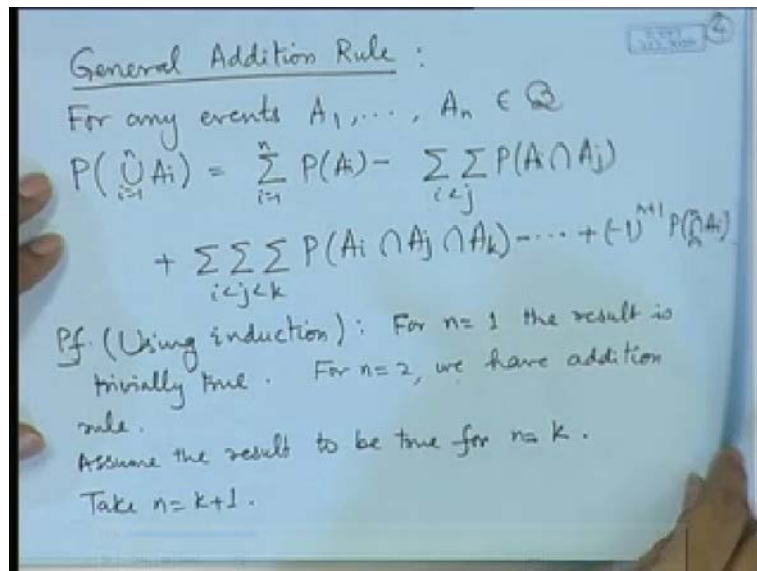 General Addition Rule :
For any events A₁, ..., Aₙ ∈ ℬ
P(⋃ᵢ₌₁ⁿ Aᵢ) = Σᵢ₌₁ⁿ P(Aᵢ) - Σ Σ_{i<j} P(Aᵢ ∩ Aⱼ)
+ Σ Σ Σ_{i<j<k} P(Aᵢ ∩ Aⱼ ∩ Aₖ) - ··· + (-1)ⁿ⁺¹ P(⋂ Aᵢ)
Pf. (Using induction) : For n = 1 the result is
trivially true . For n = 2, we have addition
rule .
Assume the result to be true for n = k .
Take n = k+1 .